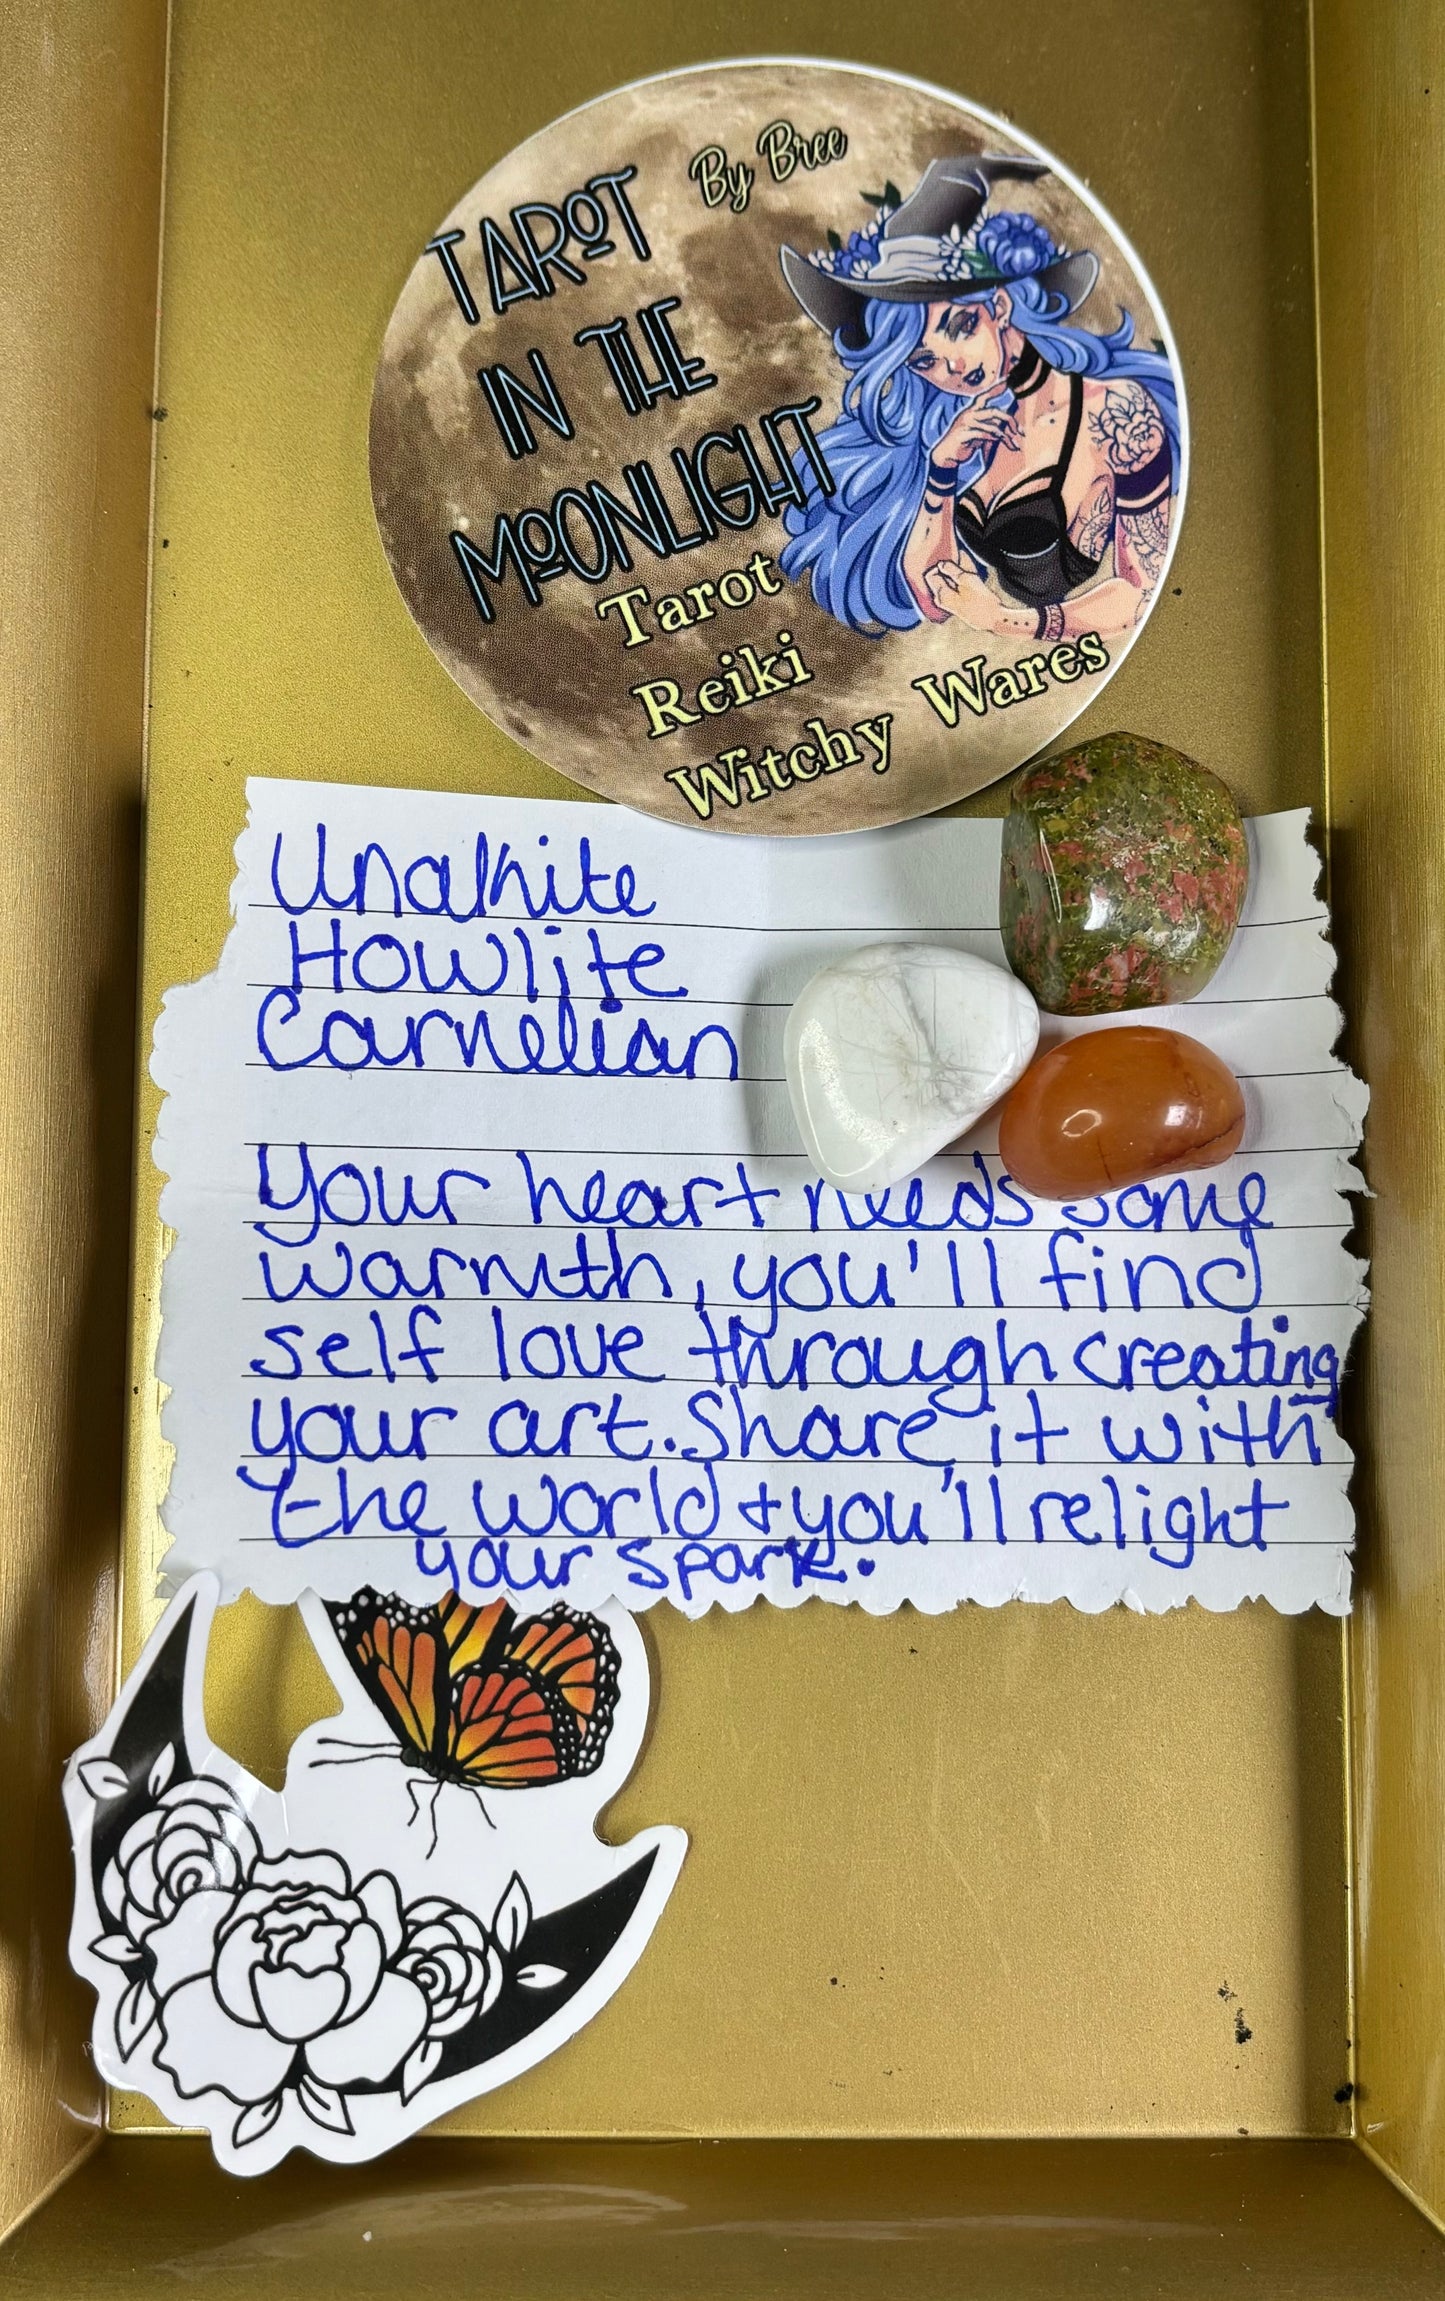 By Bree
TAROT
IN THE
MOONLIGHT
Tarot
Reiki
Witchy Wares
Unakite
Howlite
Carnelian
Your heart needs some
warmth, you'll find
self love through creating
your art. Share it with
the world + you'll relight
your spark.